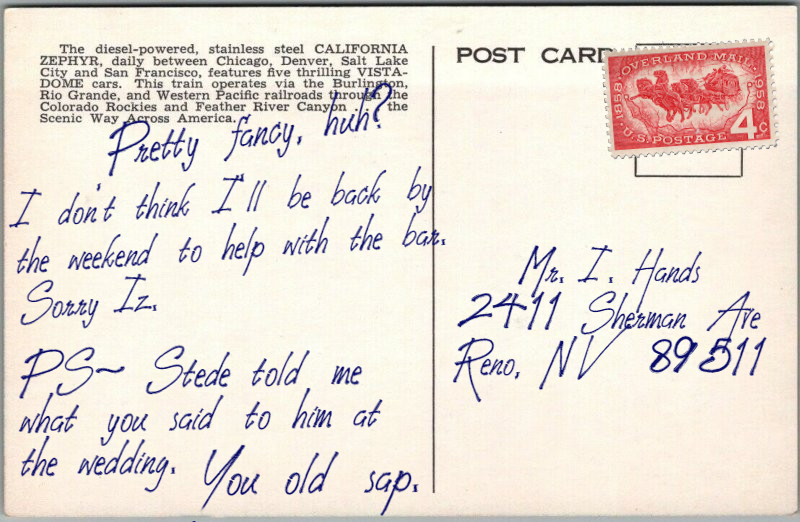 The diesel-powered, stainless steel CALIFORNIA
ZEPHYR, daily between Chicago, Denver, Salt Lake
City and San Francisco, features five thrilling VISTA-
DOME cars. This train operates via the Burlington,
Rio Grande, and Western Pacific railroads through the
Colorado Rockies and Feather River Canyon . . . the
Scenic Way Across America.
Pretty fancy, huh?
I don't think I'll be back by
the weekend to help with the bar.
Sorry Iz.
PS~ Stede told me
what you said to him at
the wedding. You old sap.
POST CARD
1858 OVERLAND MAIL 1958
U.S. POSTAGE 4c
Mr. I. Hands
2411 Sherman Ave
Reno, NV 89511